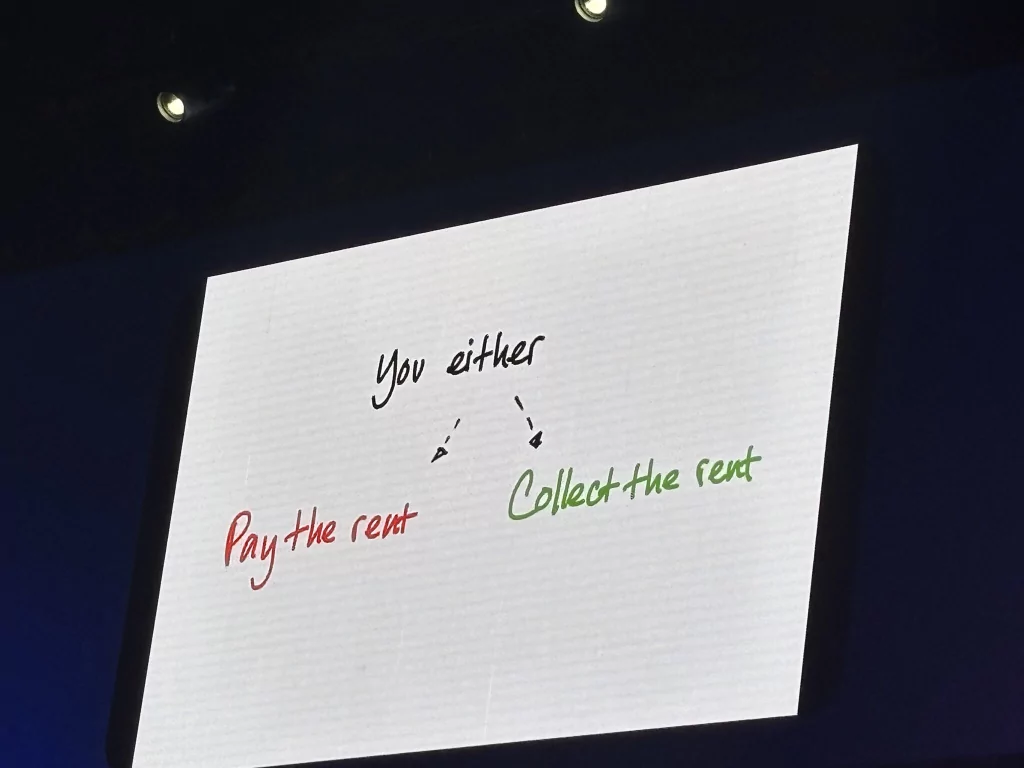 You either
Pay the rent
Collect the rent